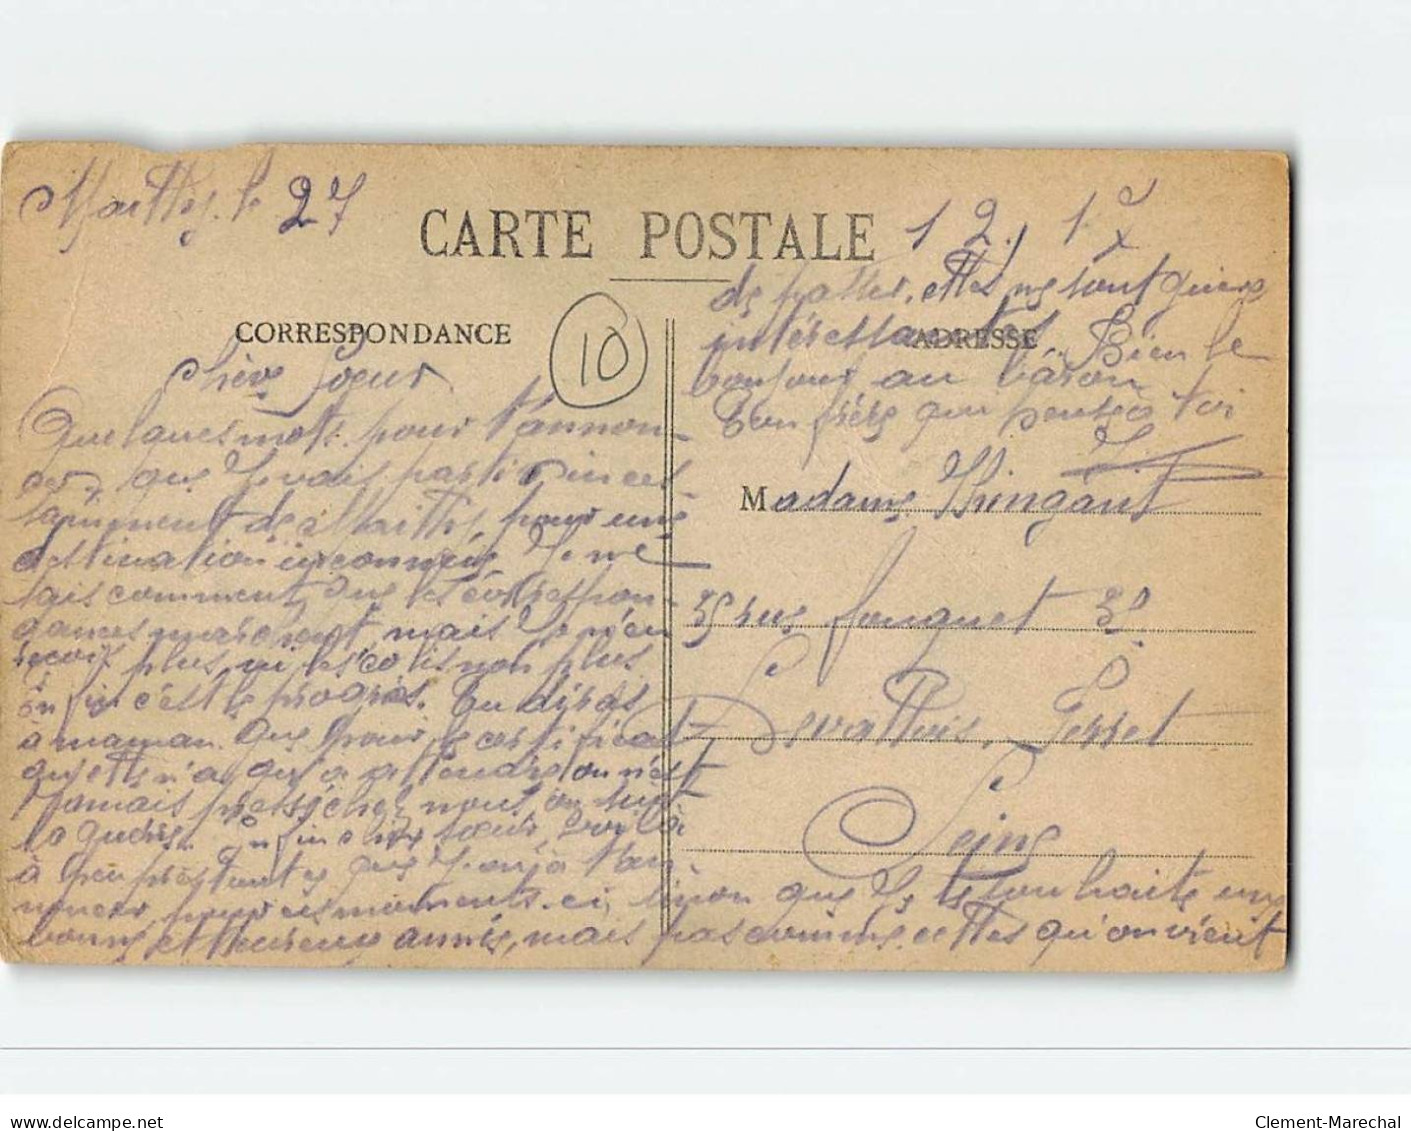 Mailly, le 27
12.17
CARTE POSTALE
10
CORRESPONDANCE
ADRESSE
Chère Soeur
Quelques mots pour t'annon-
cer que je vais partir inces-
samment de Mailly, pour une
destination inconnue, Je ne
sais comment, que les correspon-
dances marchent, mais Je n'en
reçois plus, ni les colis non plus
enfin c'est le progrès. Tu diras
à maman que pour le certificat
qu'elle n'a qu'a attendre on n'est
Jamais pressé chez nous, on
la guerre. Enfin chère soeur, voila
à peu près tout ce que J'ai à t'an-
noncer, pour ces moments-ci, sinon que Je te souhaite une
bonne et heureuse année, mais pas comme celles qu'on vient
de passer, elles ne sont guère
intéressantes. Bien le
bonjour au baron
Ton frère qui pense à toi
Madame
35 rue fouquet 35
Levallois. Perret
Seine
delcampe.net
Clement-Marechal